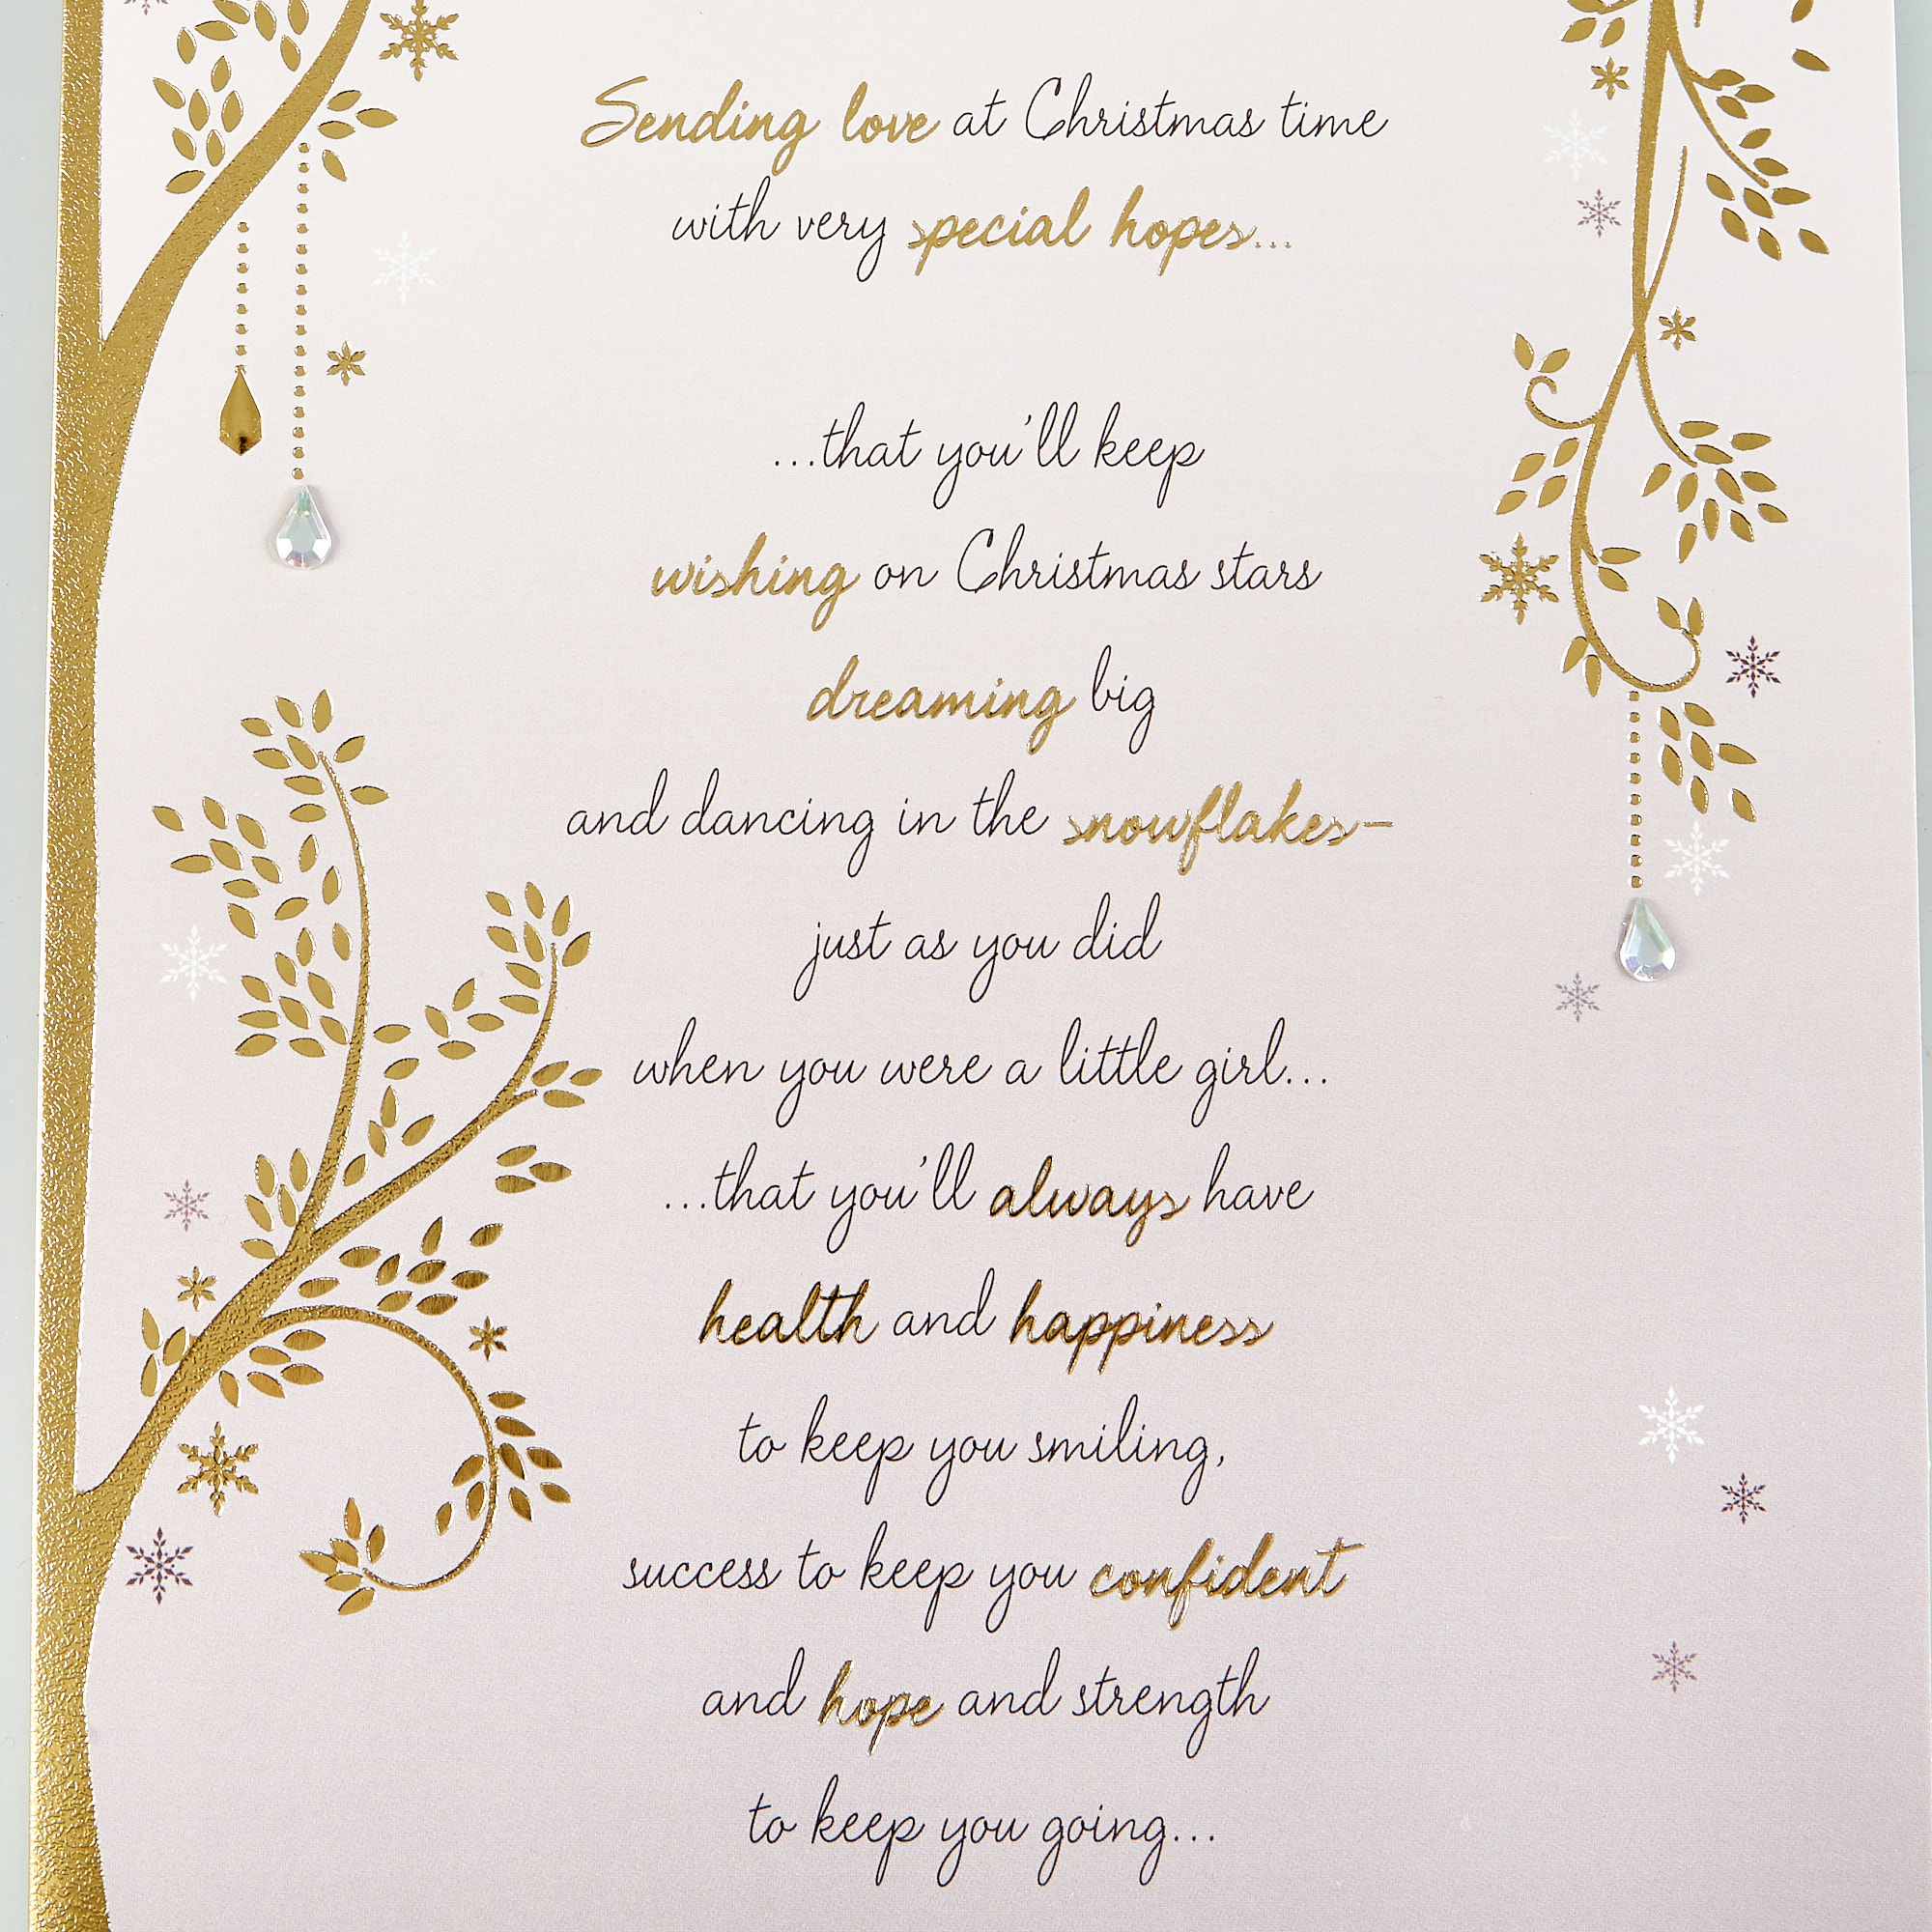 Sending love at Christmas time
with very special hopes...
...that you'll keep
wishing on Christmas stars
dreaming big
and dancing in the snowflakes–
just as you did
when you were a little girl...
...that you'll always have
health and happiness
to keep you smiling,
success to keep you confident
and hope and strength
to keep you going...